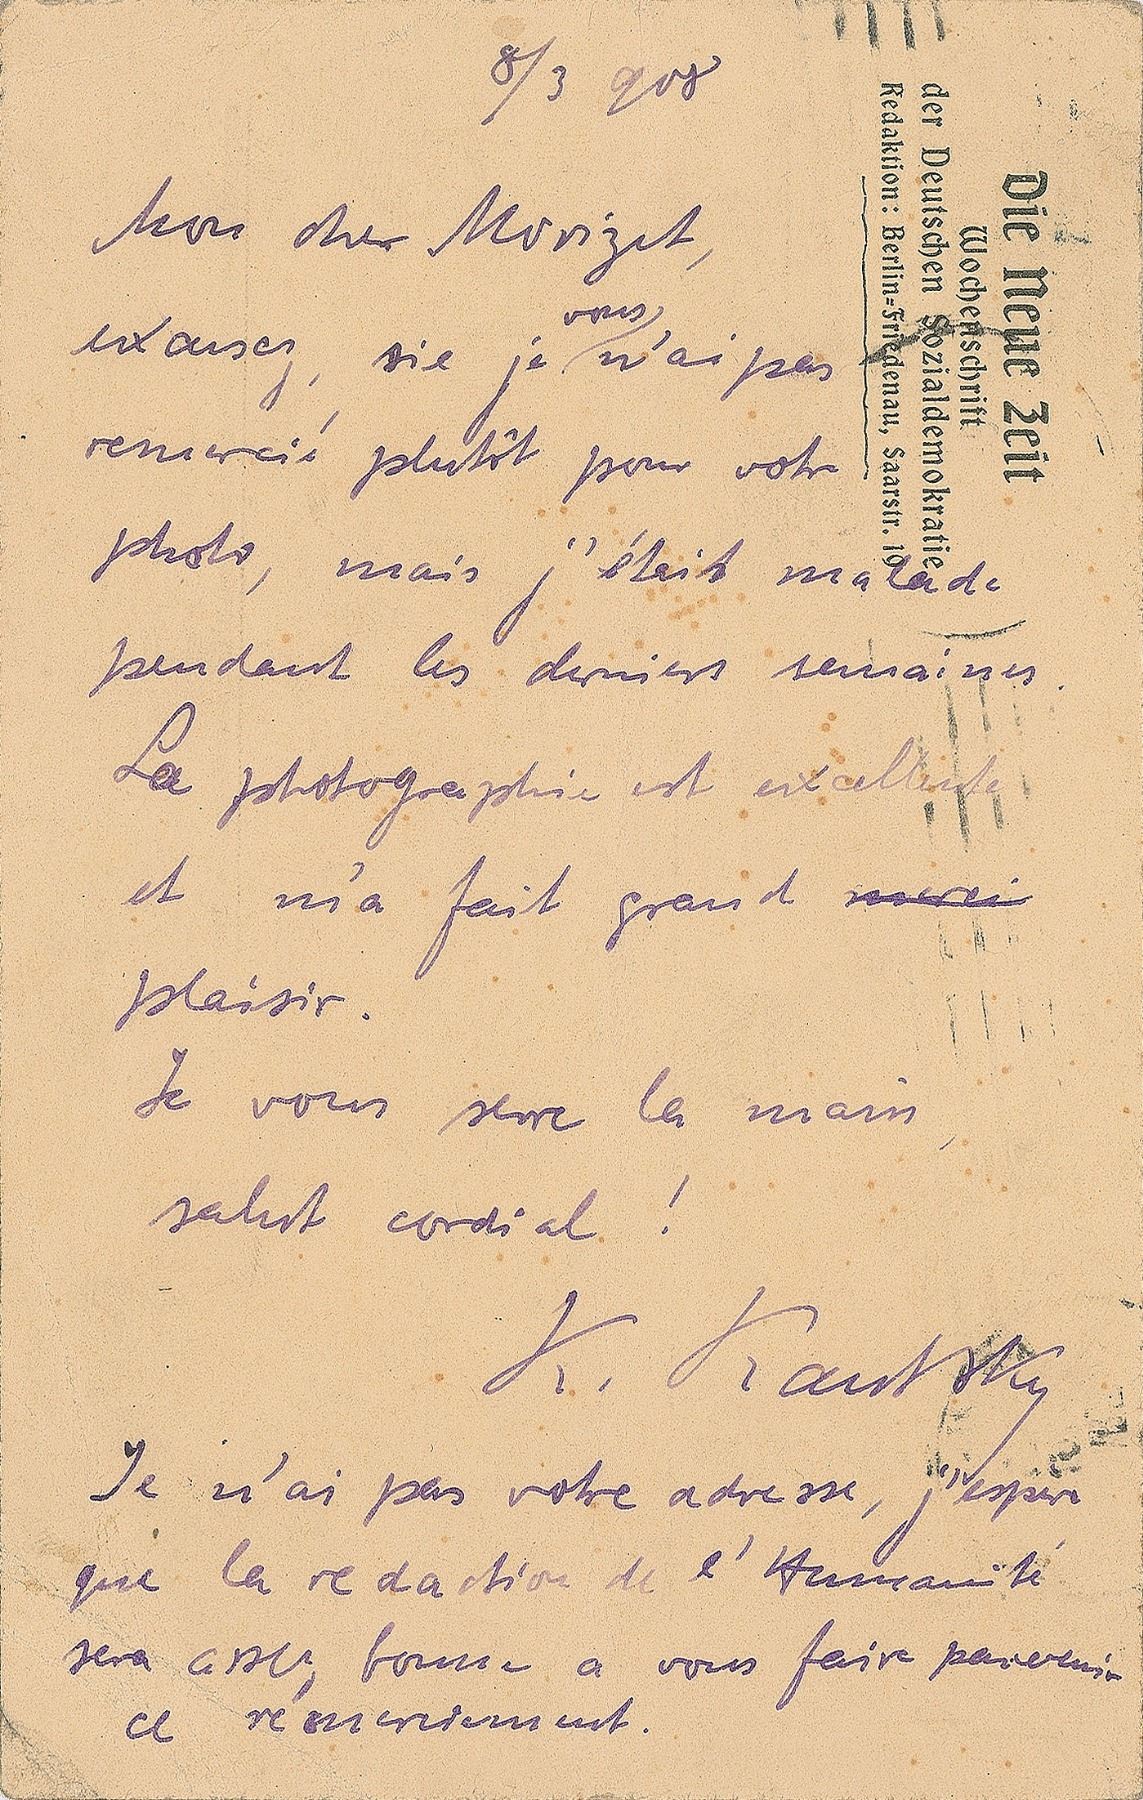 Die Neue Zeit
Wochenschrift
der Deutschen Sozialdemokratie
Redaktion: Berlin-Friedenau, Saarstr. 19
8/3 908
Mon cher Morizet,
excusez, sie je vous n'ai pas
remercié plutôt pour votre
photo, mais j'était malade
pendant les derniers semaines.
La photographie est excellente
et m'a fait grand merci
plaisir.
Je vous serre la main,
salut cordial!
K. Kautsky
Je n'ai pas votre adresse, j'espère
que la redaction de l'Humanité
sera assez bonne a vous faire parvenir
ce rémerciement.